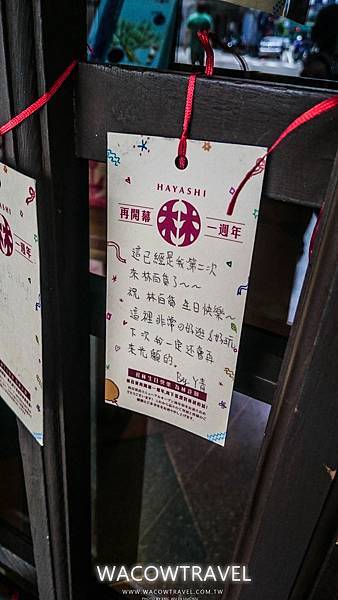 HAYASHI
再開幕 林 一週年
這已經是我第二次
來林百貨了~~
祝 林百貨 生日快樂~
這裡非常の好逛&好玩
下次我一定還會再
來光顧的。
By 青
林
週年
WACOWTRAVEL
WWW.WACOWTRAVEL.COM.TW